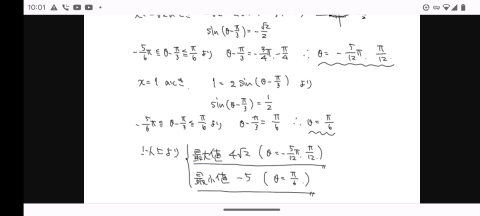 10:01
sin(θ-π/3)=-√2/2
-5/6π≦θ-π/3≦π/6 より θ-π/3=-3/4π,-π/4 ∴ θ=-5/12π, π/12
x=1 のとき 1=2sin(θ-π/3) より
sin(θ-π/3)=1/2
-5/6π≦θ-π/3≦π/6 より θ-π/3=π/6 ∴ θ=π/6
以上より
最大値 4√2 (θ=-5/12π, π/12)
最小値 -5 (θ=π/6)